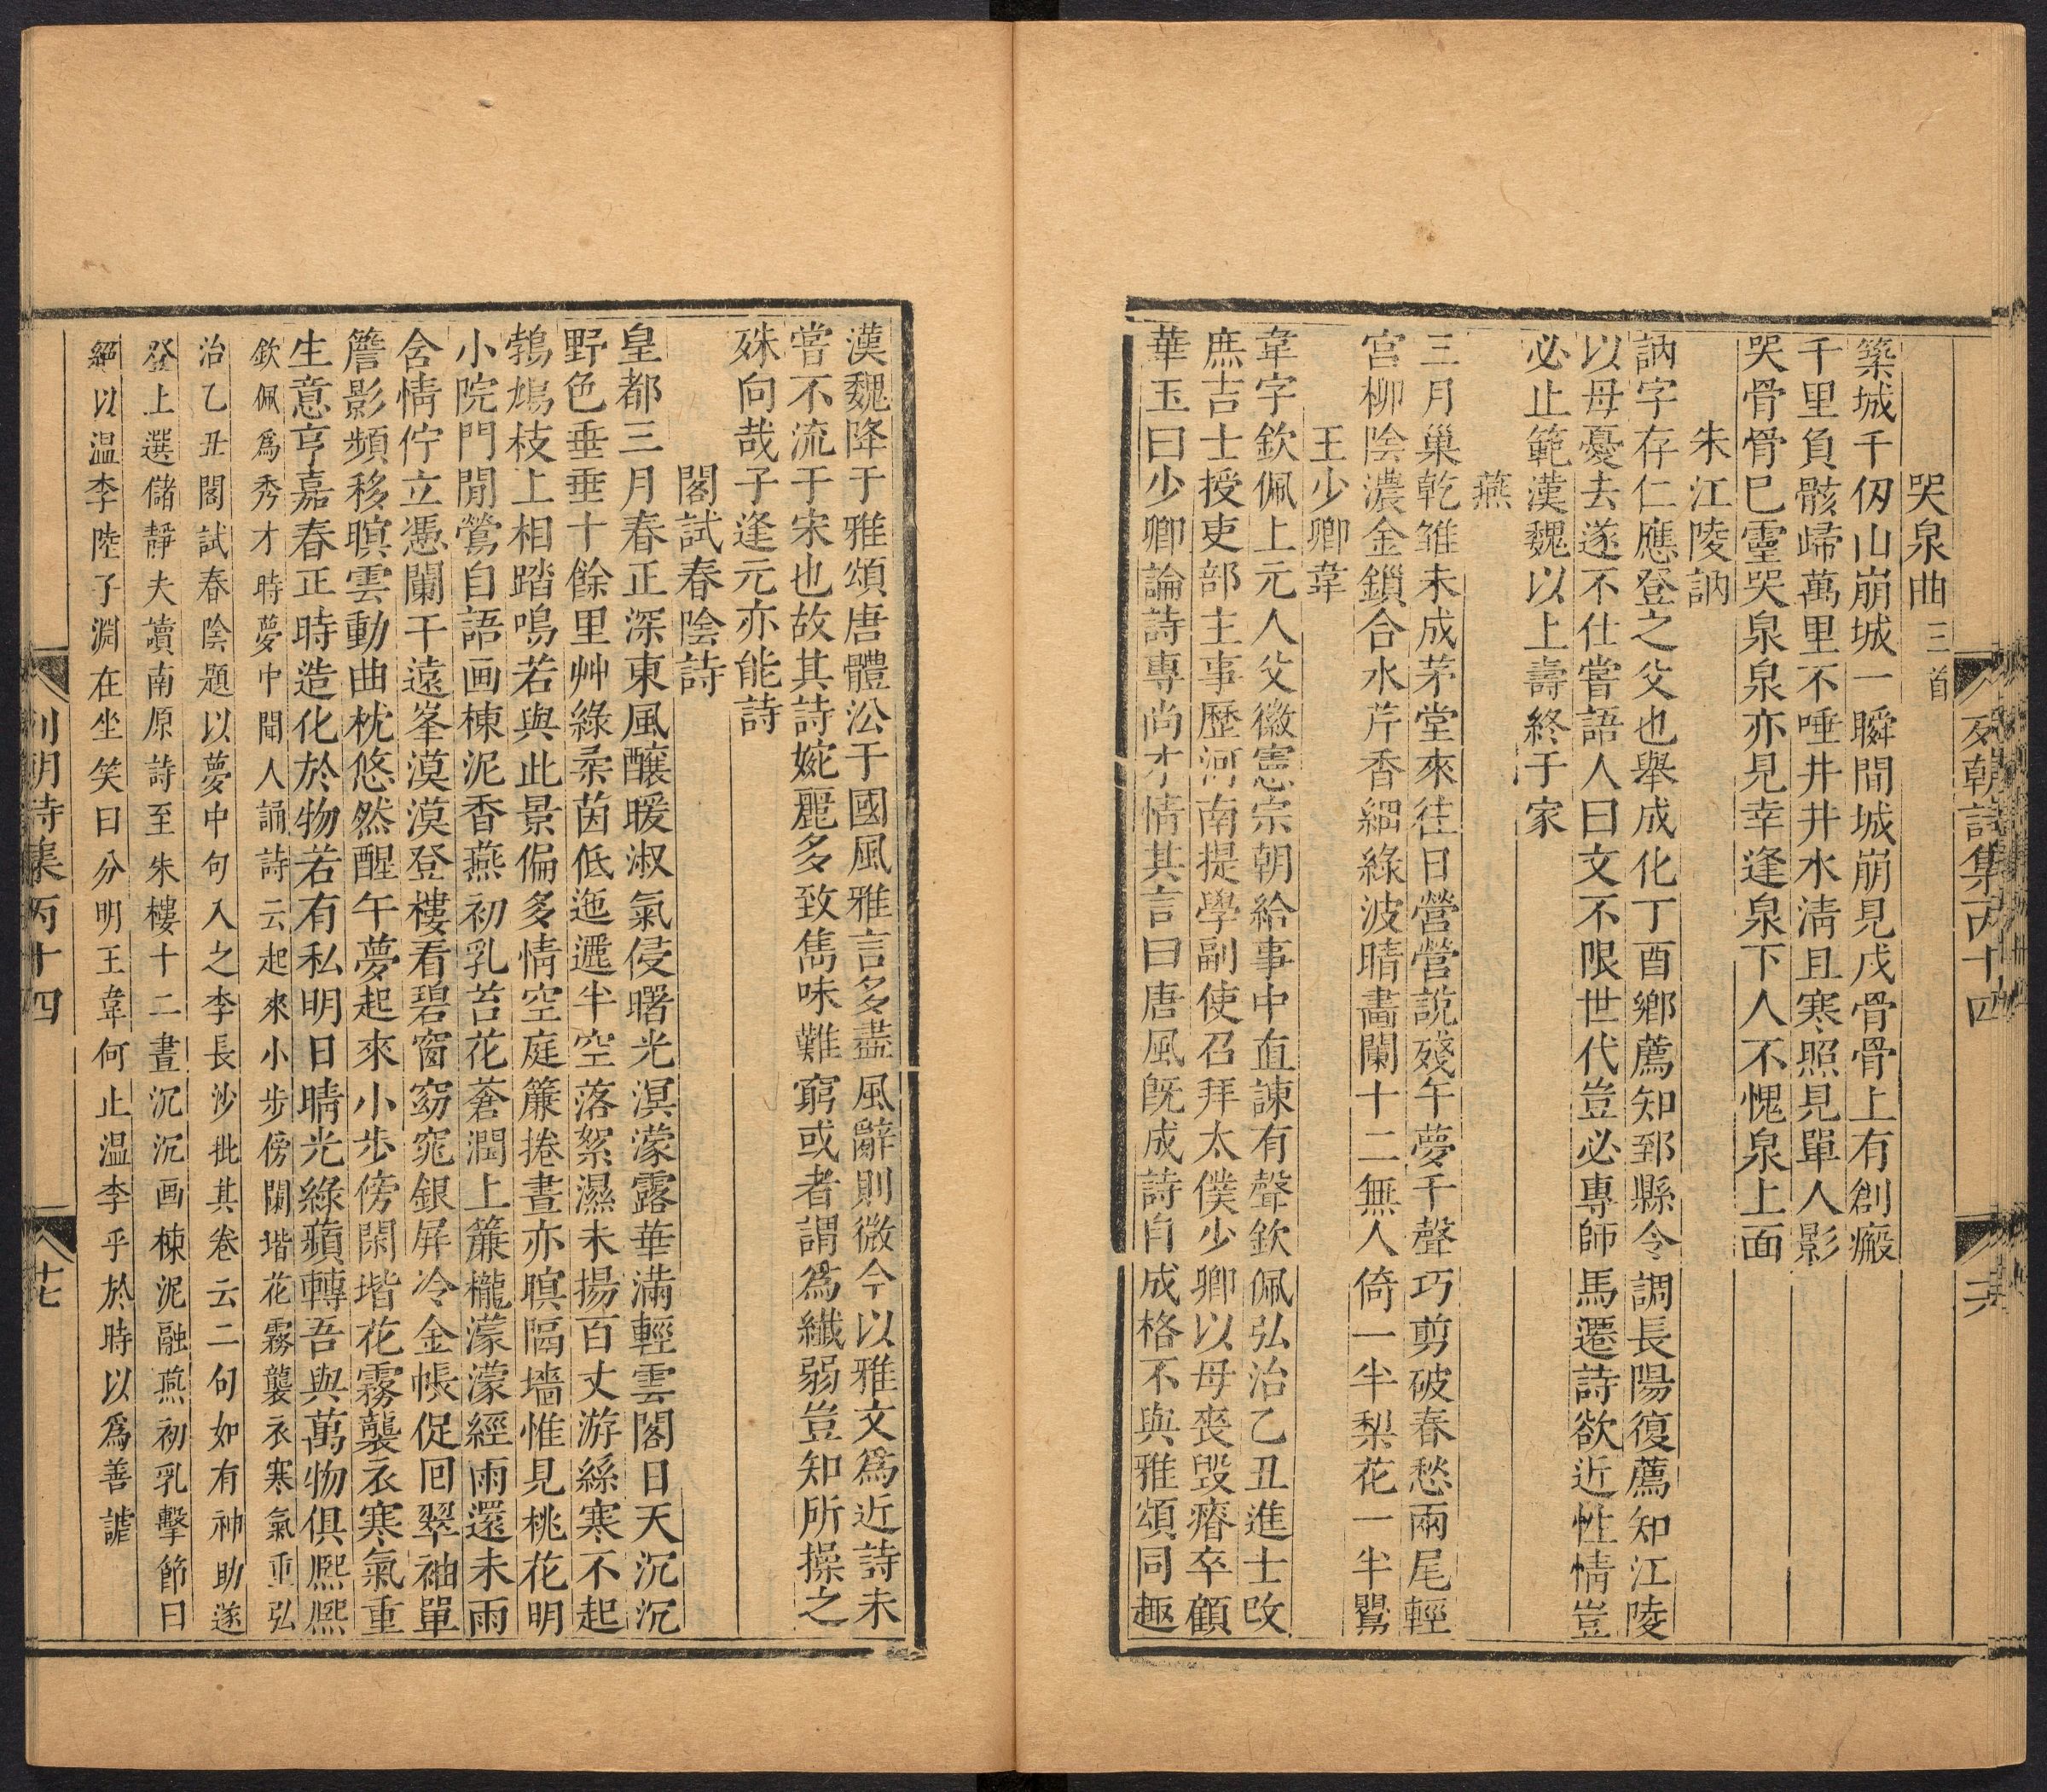 列朝詩集丙十四
哭泉曲三首
築城千仭山崩城一瞬間城崩見戊骨骨上有創瘢
千里負骸歸萬里不唾井井水淸且寒照見單人影
哭骨骨巳靈哭泉泉亦見幸逢泉下人不愧泉上面
朱江陵訥
訥字存仁應登之父也舉成化丁酉鄉薦知郅縣令調長陽復薦知江陵
以母憂去遂不仕嘗語人曰文不限世代豈必專師馬遷詩欲近性情豈
必止範漢魏以上壽終于家
燕
三月巢乾雏未成茅堂來往日營營說殘午夢千聲巧剪破春愁兩尾輕
宮柳陰濃金鎖合水芹香細綠波晴畵闌十二無人倚一半梨花一半鸎
王少卿韋
韋字欽佩上元人父徽憲宗朝給事中直諫有聲欽佩弘治乙丑進士改
庶吉士授吏部主事歷河南提學副使召拜太僕少卿以母喪毀瘠卒顧
華玉曰少卿論詩專尚才情其言曰唐風旣成詩自成格不與雅頌同趣
漢魏降于雅頌唐體沿于國風雅言多盡風辭則微今以雅文爲近詩未
嘗不流于宋也故其詩婉麗多致雋味難窮或者謂爲纖弱豈知所操之
殊向哉子逢元亦能詩
閣試春陰詩
皇都三月春正深東風釀暖淑氣侵曙光溟濛露華滿輕雲閣日天沉沉
野色垂垂十餘里艸綠柔茵低迤邐半空落絮濕未揚百丈游絲寒不起
鵓鳩枝上相踏鳴若與此景偏多情空庭簾捲晝亦暝隔墻惟見桃花明
小院門閒鶯自語画棟泥香燕初乳苔花蒼潤上簾櫳濛濛經雨還未雨
含情佇立憑闌干遠峯漠漠登樓看碧窗窈窕銀屏冷金帳促囘翠袖單
簷影頻移暝雲動曲枕悠然醒午夢起來小步傍閑堦花霧襲衣寒氣重
生意亨嘉春正時造化於物若有私明日晴光綠蘋轉吾與萬物俱熈熈
欽佩爲秀才時夢中聞人誦詩云起來小步傍闌堦花霧襲衣寒氣重弘
治乙丑閣試春陰題以夢中句入之李長沙批其卷云二句如有神助遂
登上選儲靜夫讀南原詩至朱樓十二晝沉沉画棟泥融燕初乳擊節曰
絕以温李陸子淵在坐笑曰分明王韋何止温李乎於時以爲善謔
列朝詩集丙十四